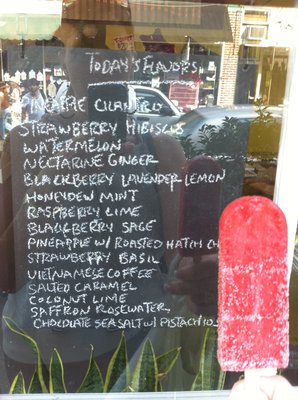 TODAY'S FLAVORS
PINEAPPLE CILANTRO
STRAWBERRY HIBISCUS
WATERMELON
NECTARINE GINGER
BLACKBERRY LAVENDER LEMON
HONEYDEW MINT
RASPBERRY LIME
BLACKBERRY SAGE
PINEAPPLE W/ ROASTED HATCH CH
STRAWBERRY BASIL
VIETNAMESE COFFEE
SALTED CARAMEL
COCONUT LIME
SAFFRON ROSEWATER
CHOCOLATE SEA SALT W/ PISTACHIOS